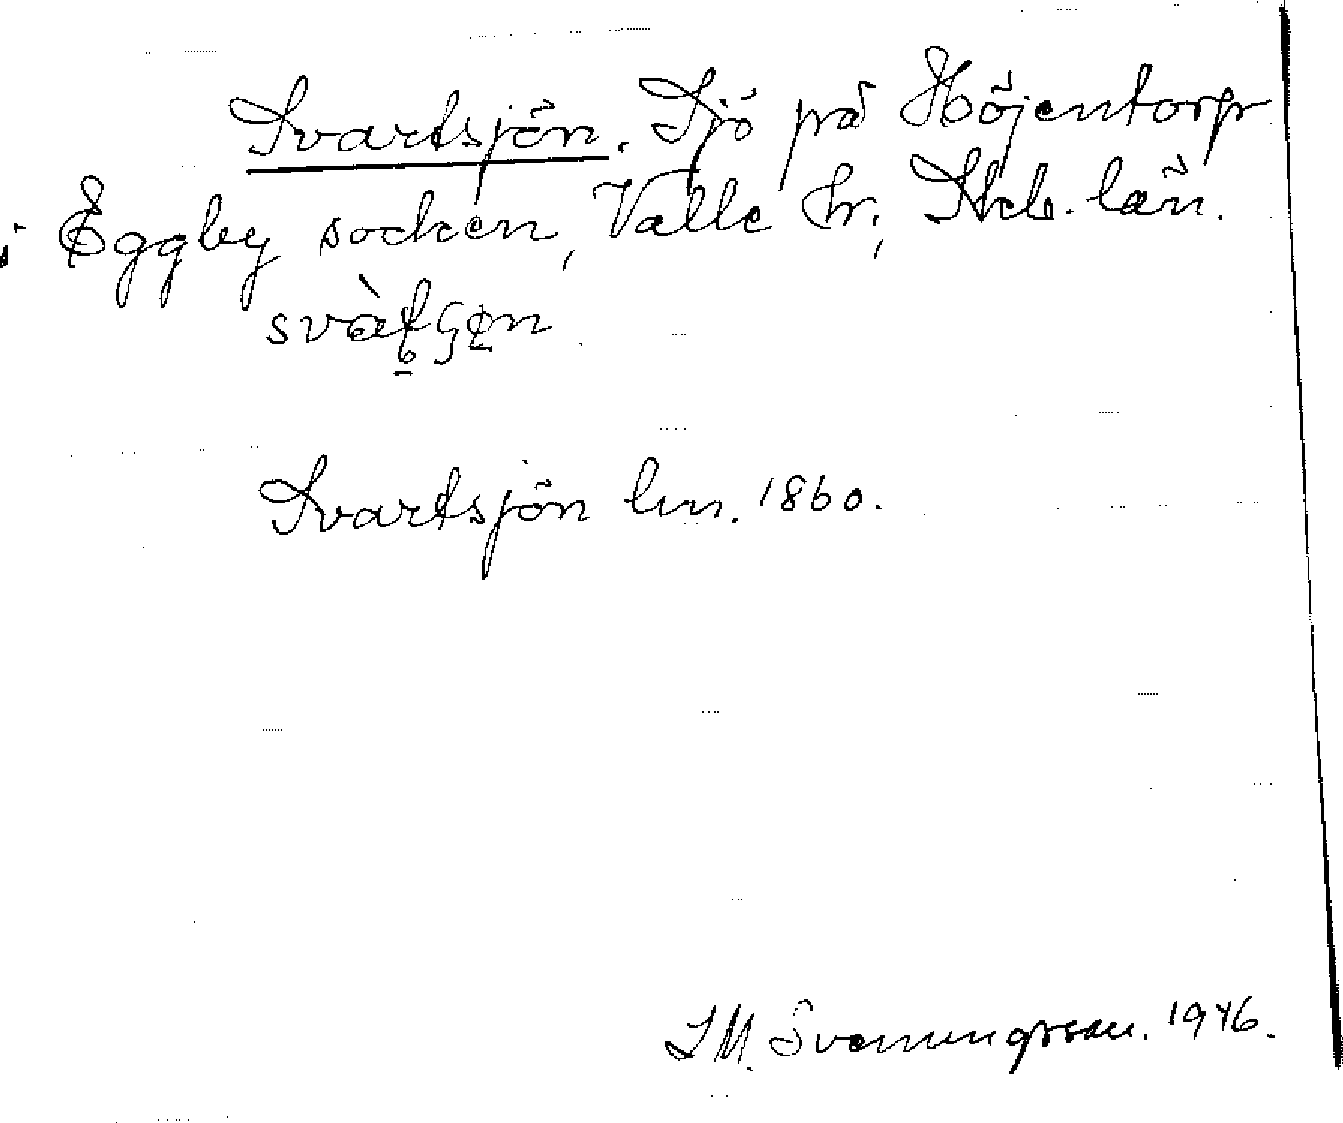 Svartsjön. Sjö på Höjentorp
i Eggby socken, Valle hr, Skb. län.
Svartsjön lm. 1860.
S M. Svenungsson. 1946.